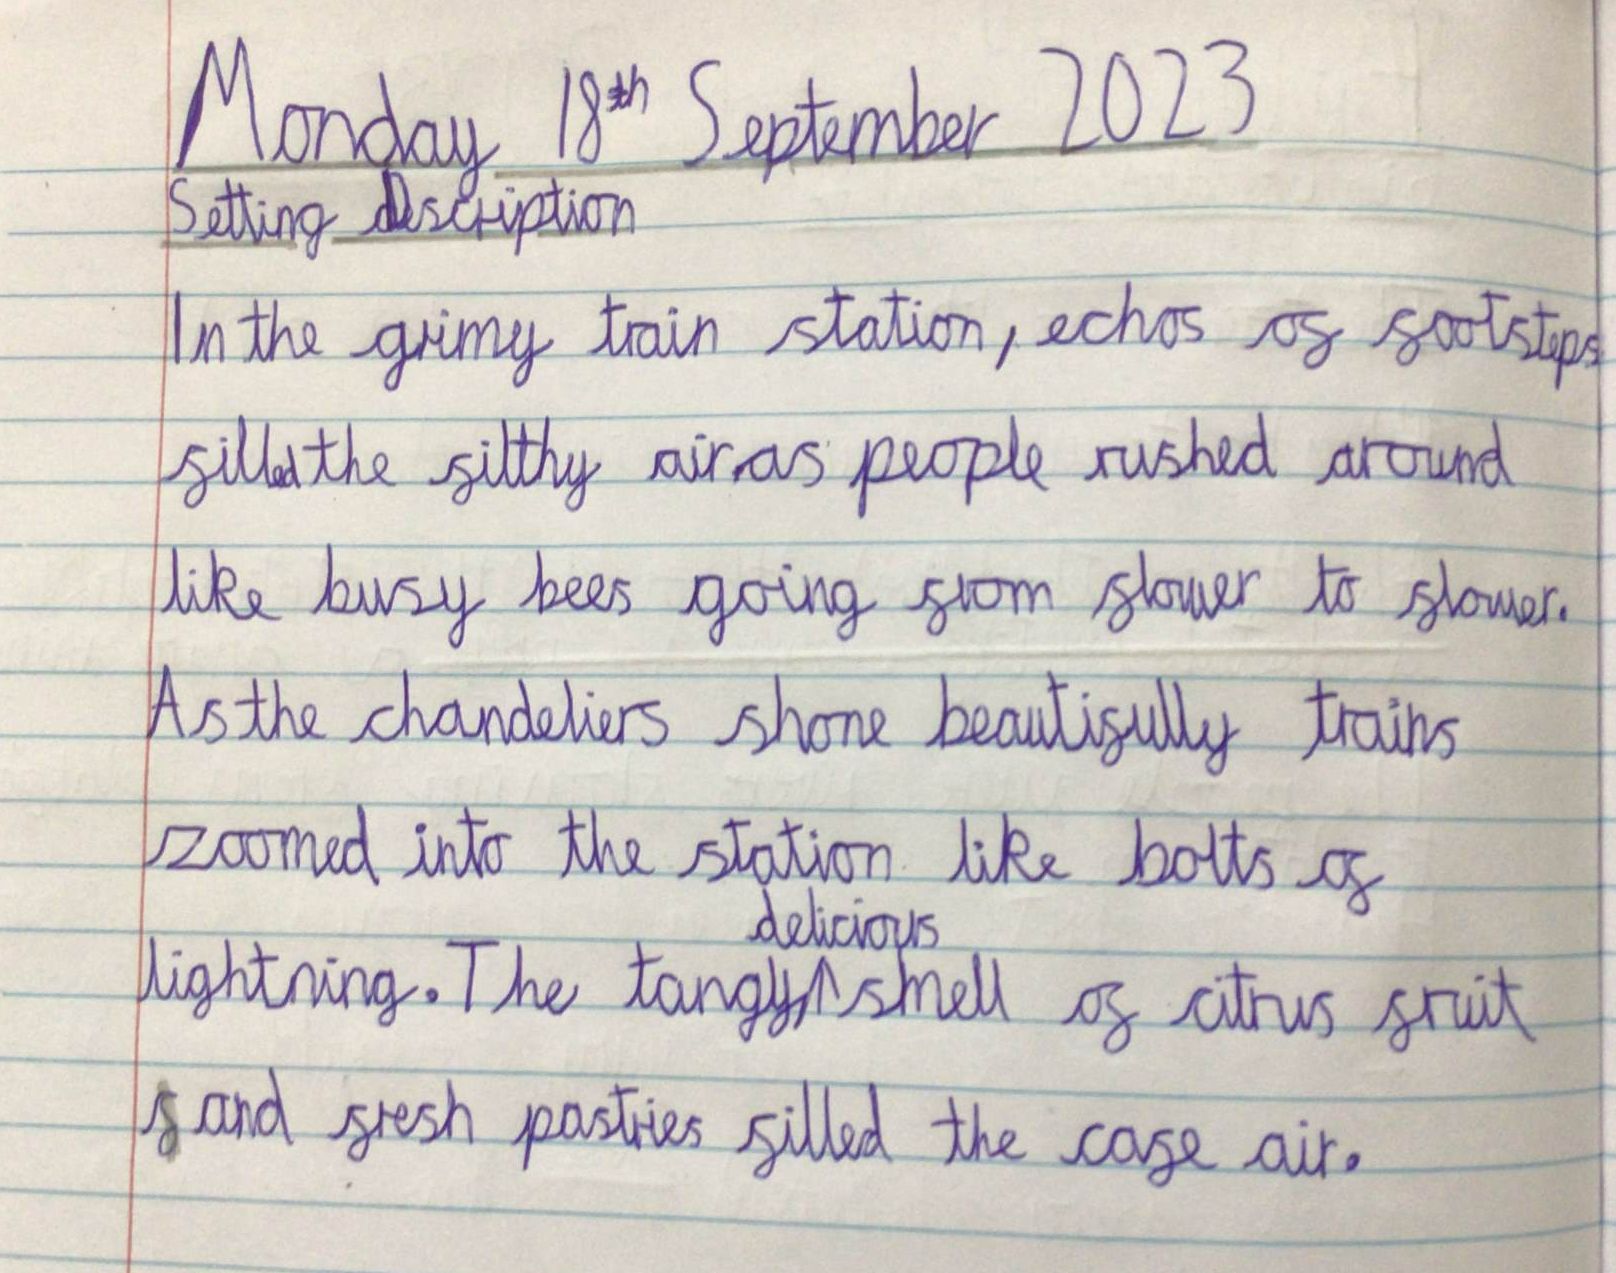 Monday 18th September 2023
Setting Description
In the grimy train station, echos of footsteps
filled the filthy air as people rushed around
like busy bees going from flower to flower.
As the chandeliers shone beautifully trains
zoomed into the station like bolts of
delicious
lightning. The tangy, smell of citrus fruit
and fresh pastries filled the cafe air.